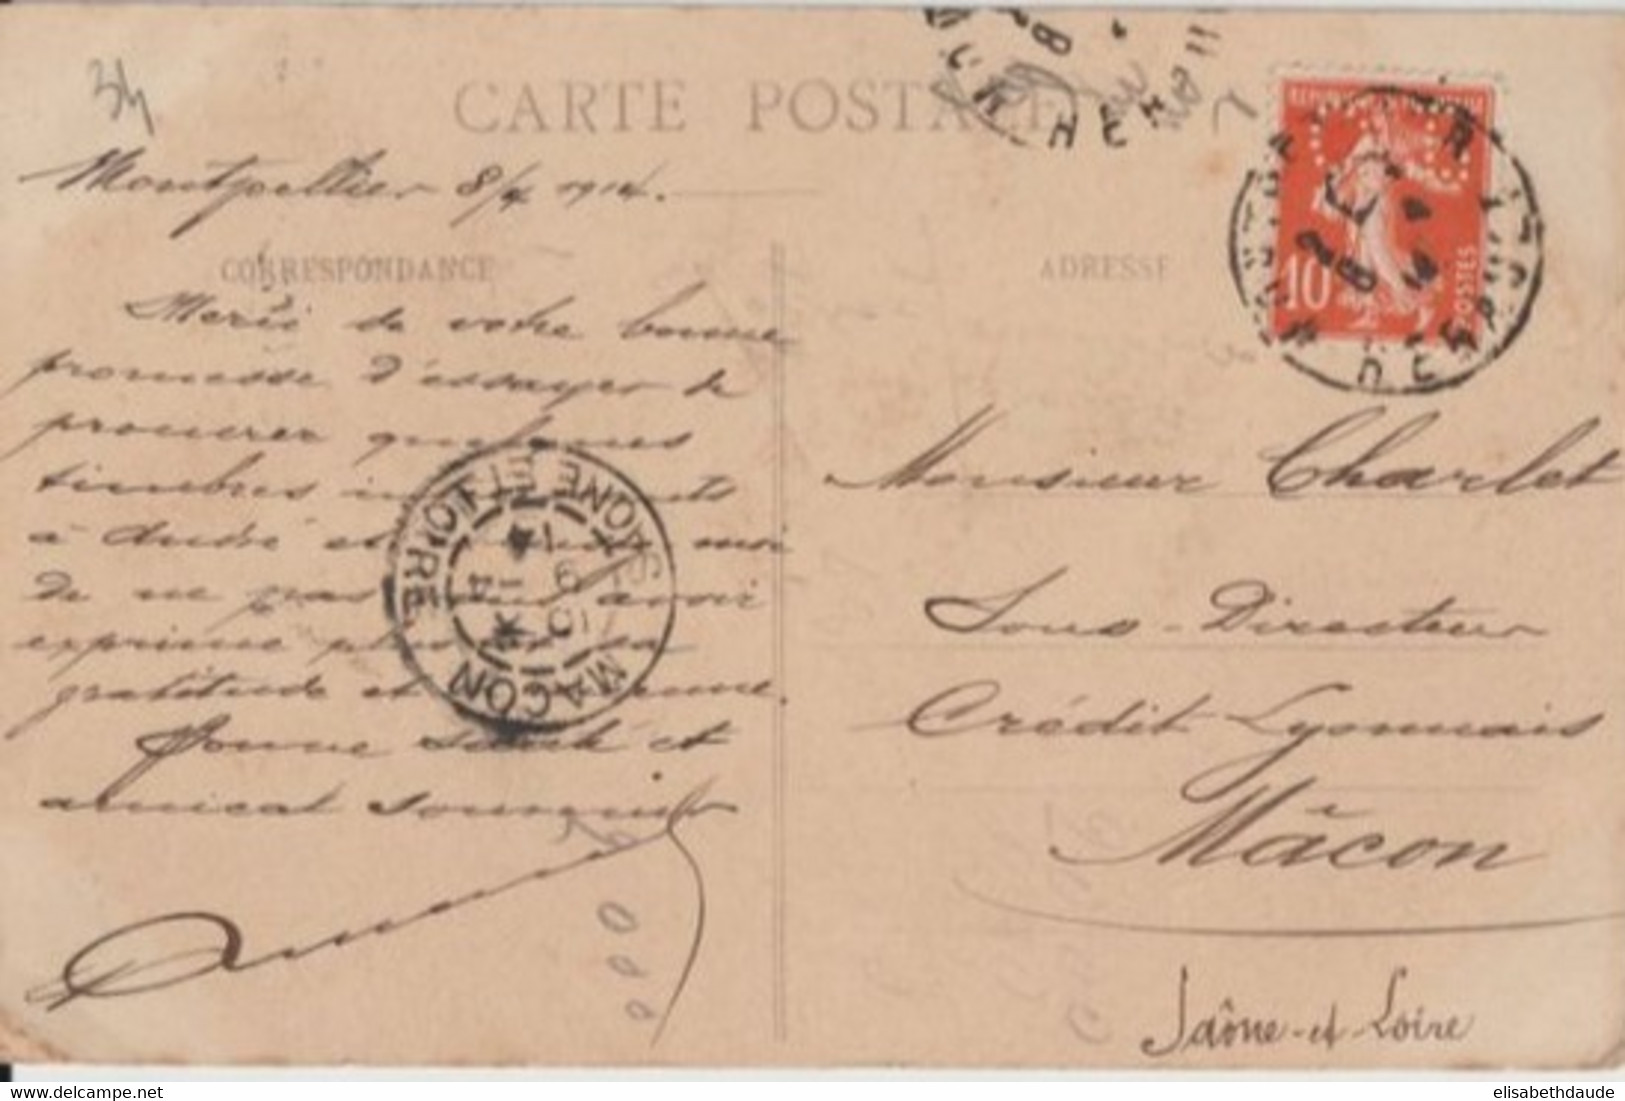 34
CARTE POSTALE
Montpellier 8/4 1914.
CORRESPONDANCE
Merci de votre bonne
promesse d'essayer de
procurer quelques
timbres
à André et moi
de ne pas avoir
exprimé plus sa
gratitude et
Bonne santé et
amical souvenir
ADRESSE
10
POSTES
HERAULT
Monsieur Charlet
Sous-Directeur
Crédit Lyonnais
Mâcon
Saône-et-Loire
MACON
SAONE ET LOIRE
elisabethdaude